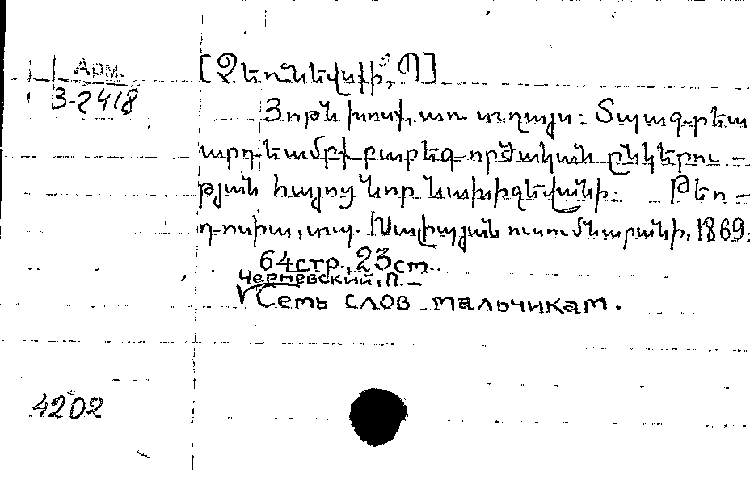 Арм.
3-2418
[Չեռնեվսքի, Պ]
Յօթն խօսք, առ տղայս: Տպագրեա
արդեամբք բարեգործական ընկերու-
թյան հայոց Նոր Նախիջեվանի. Թեո-
դոսիա, տպ. Խալիպյան ուսումնարանի, 1869.
64стр., 23 ст.
Черневский, П.-
Семь слов мальчикам.
4202